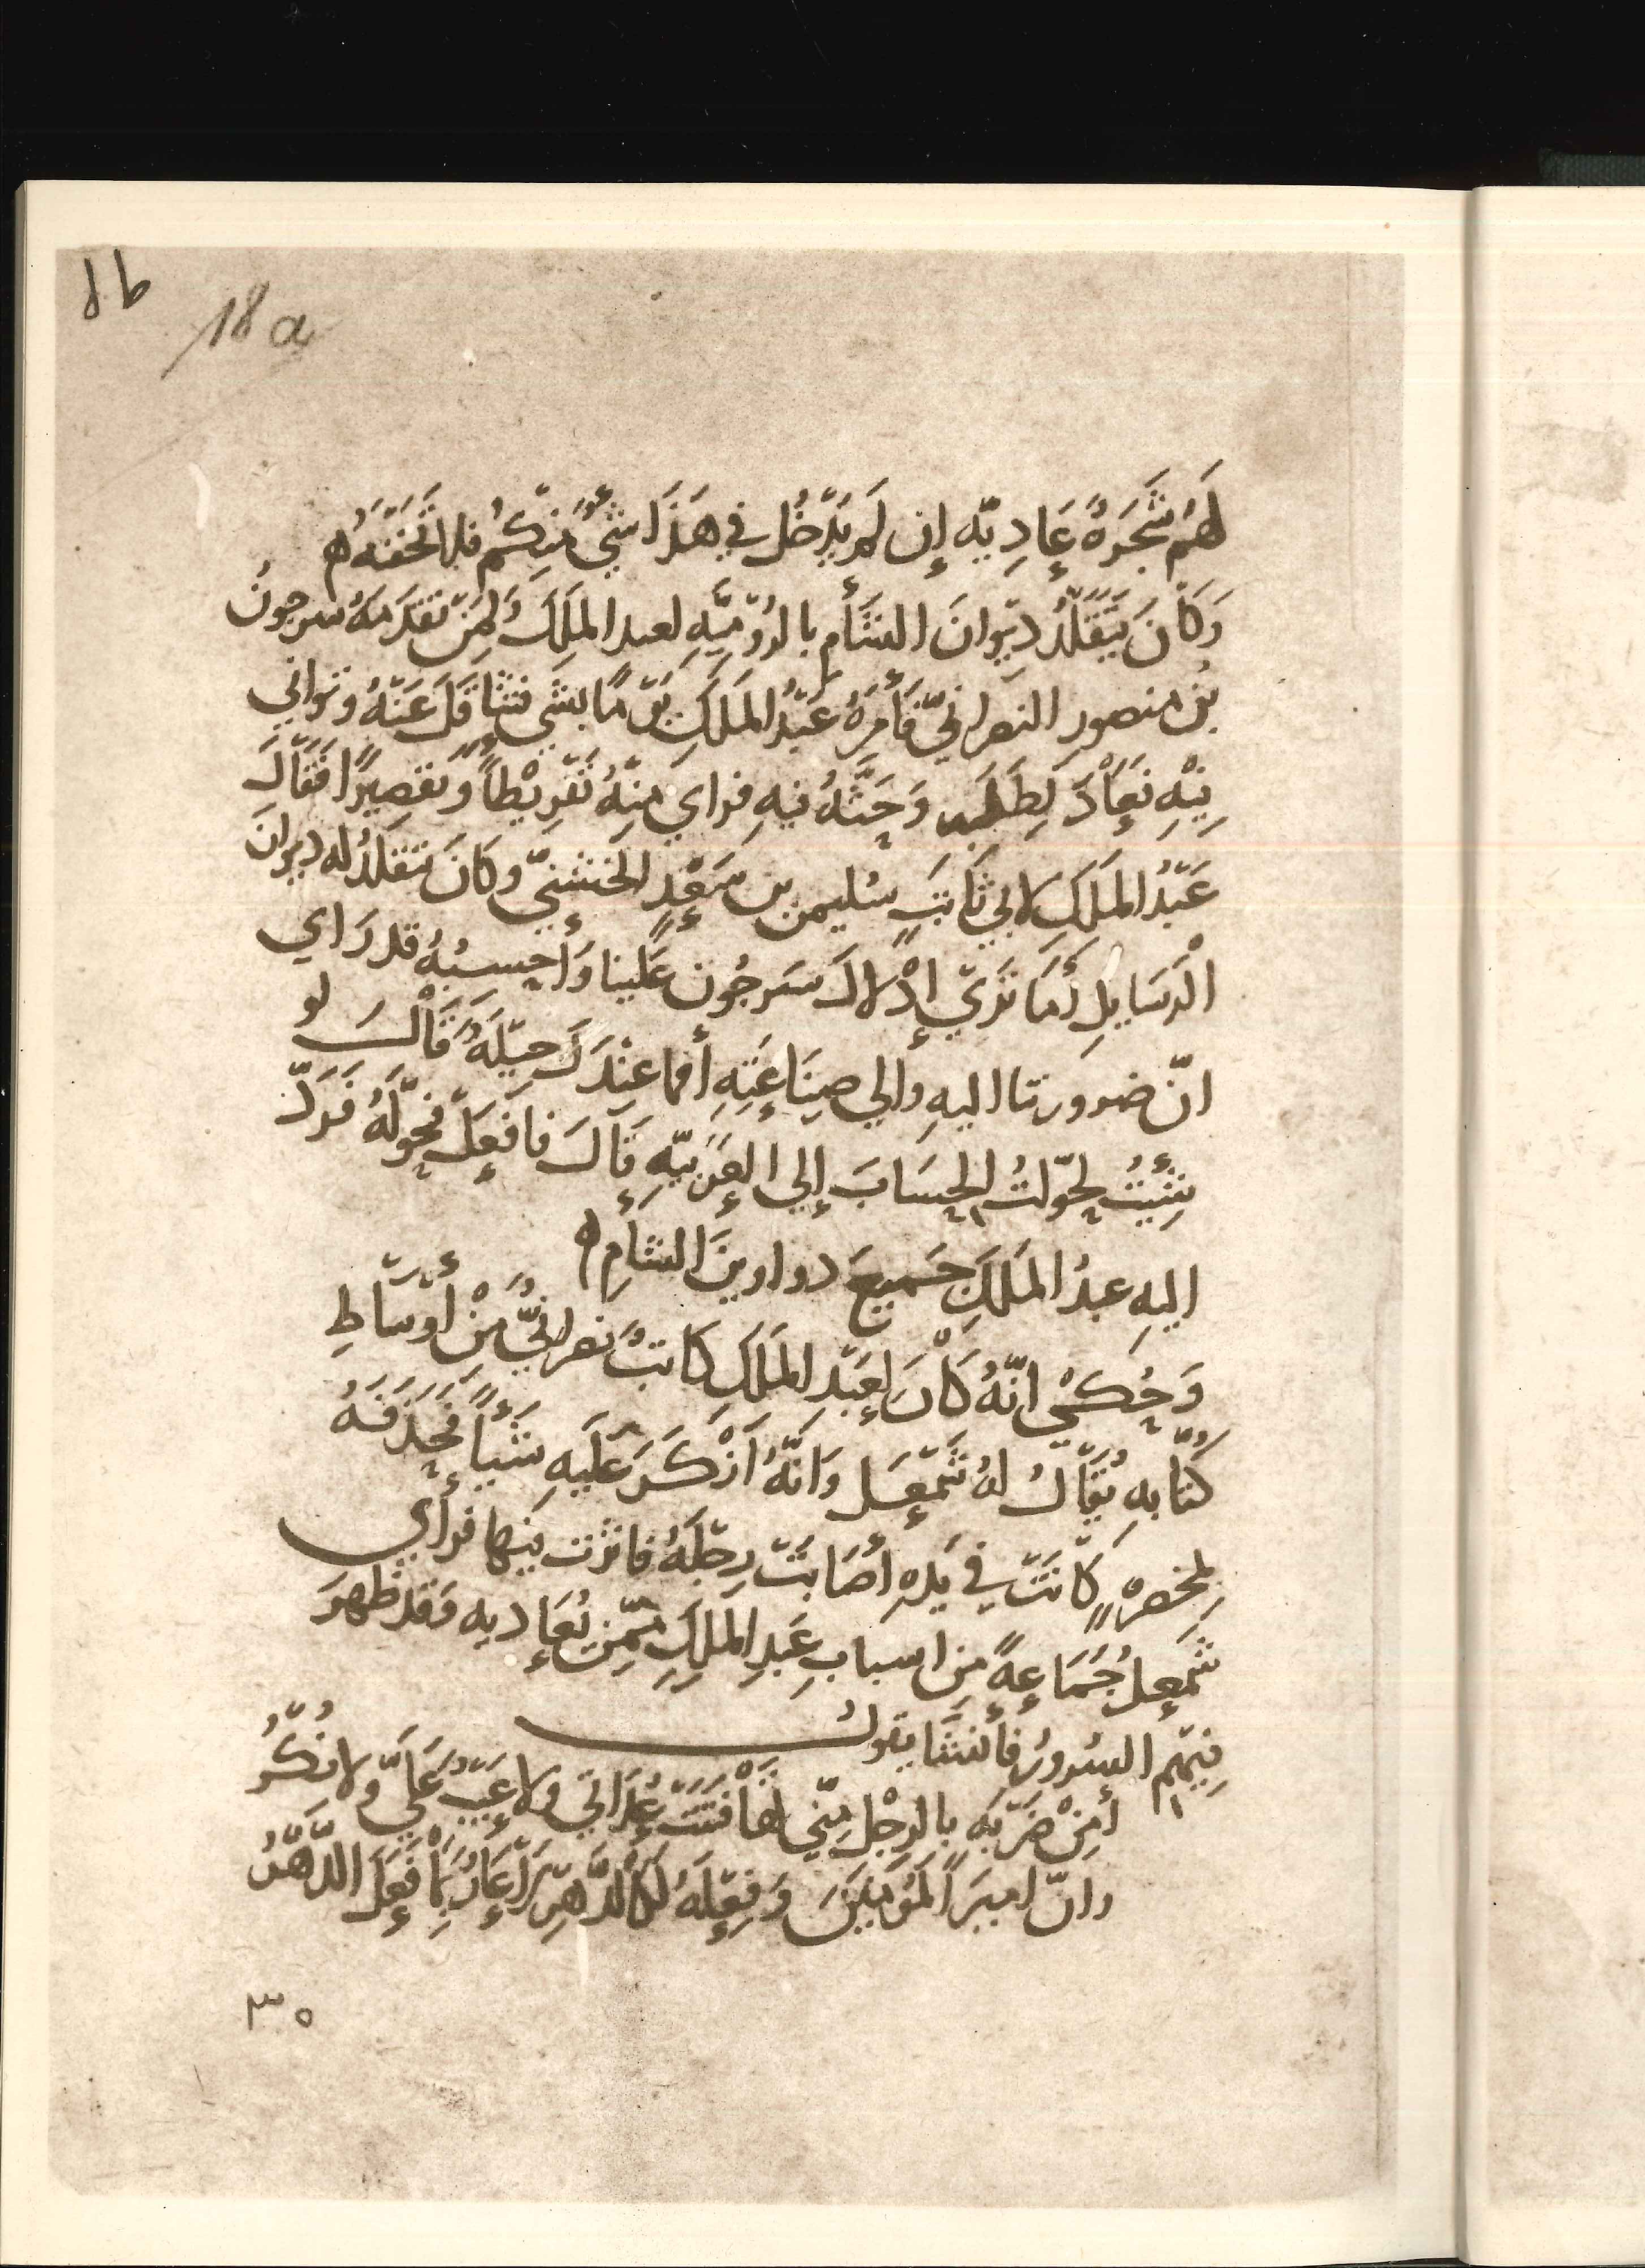 18a
لَهُم شَجَرةٌ عَادِيّه إن لم يَدْخُل في هَذَا شَيٌ مِنكُم فلا تُحَفِّنَهُ ه
وَكَانَ يَتَقَلَّدُ ديْوانَ الشَأم بالرُوْميَّهِ لعبد الملَكِ ولمَنْ تقدَمَهُ سرجونُ
بن منصور النصرانيّ فَأَمرَهُ عَبْدُ المَلَكِ يَوْمًا بشَيٍ فتثاقَلَ عَنْهُ وتوانى
فِيْهِ فعَادَ لِطَلَبه وَحَثَّهُ فيهِ فراي مِنْهُ تَفْرِيْطاً وَتقصِيرًا فقَالَ
عَبْدُ المَلَكِ لابي ثَابتٍ سُليمن بن سَعْدٍ الخشنيّ وكَانَ تتقلدُ له ديوانَ
الرَسَايلِ أمَا تَرَيْ إدْلالَ سَرجُونَ عَلينا وَأحسِبُهُ قد رَاي
انّ ضرورتنا اليهِ والي صِنَاعَتِهِ أفما عِنْدَكَ حِيْلَهٌ قَالَ لو
شِئْتُ لحوّلتُ الحِسَابَ إلي العَرَبيّهِ قَالَ فافعَلْ فحوَّلَهُ فَرَدَّ
اليهِ عبدُ المَلَكِ جَميعَ دواوينَ الشأمِ ه
وَحُكِيْ انّهُ كَانَ لِعَبْد المَلَكِ كاتبٌ نصرانيٌّ مِنْ أوْسَاطِ
كُتّابهِ يُقَالُ لهُ شَمْعَل وَانَّهُ أنْكَرَ عَليَهِ شَيْأً فَحَذَفَهُ
بِمِخصرهٍ كَانَتْ في يَدهِ أصَابَتْ رِجْلَهُ فاثرت فيها فرأي
شَمعل جُمَاعةً مِن اسبابِ عَبدِ المَلِكِ مِمّن يُعَاديه وَقد ظهرَ
فِيْهم السُرورُ فأنشَا يقولُ
أمِنْ ضَرْبَهٍ بالرِجْل مِنّي تهَافتَتْ عُدَاتي ولا عَيْبٌ عَليَّ ولا نُكْرُ
وانّ اميرَ المُؤمنِينَ وَفِعْلَهُ لكالدَّهرِ لا عَارٌ بمَا فَعَلَ الدَّهْرُ
٣٥